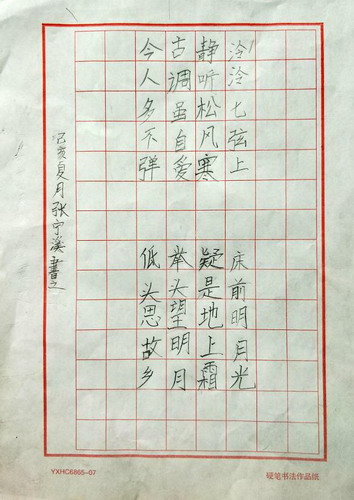 泠泠七弦上
静听松风寒
古调虽自爱
今人多不弹
床前明月光
疑是地上霜
举头望明月
低头思故乡
己亥夏月张宁溪書之
YXHC6865-07
硬笔书法作品纸